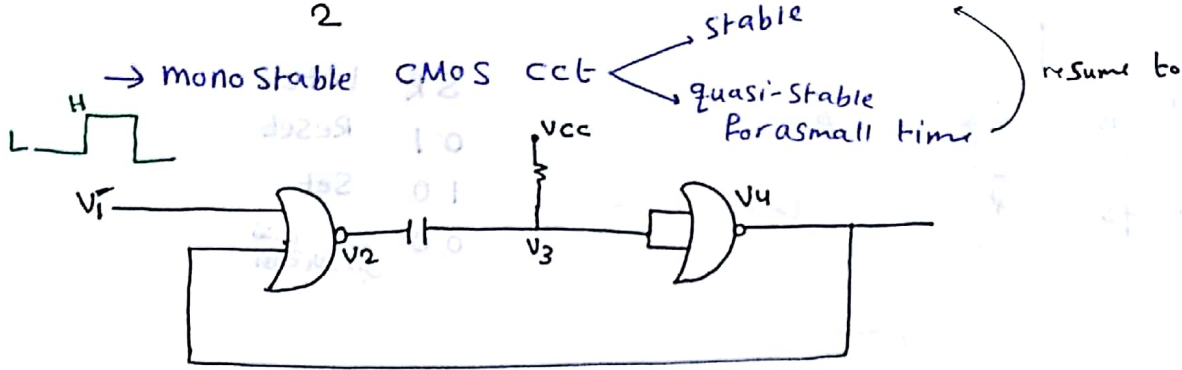 2
→ mono stable CMOS cct
stable
quasi-stable
for a small time
resume to
H
L
VCC
V1
V2
V3
V4